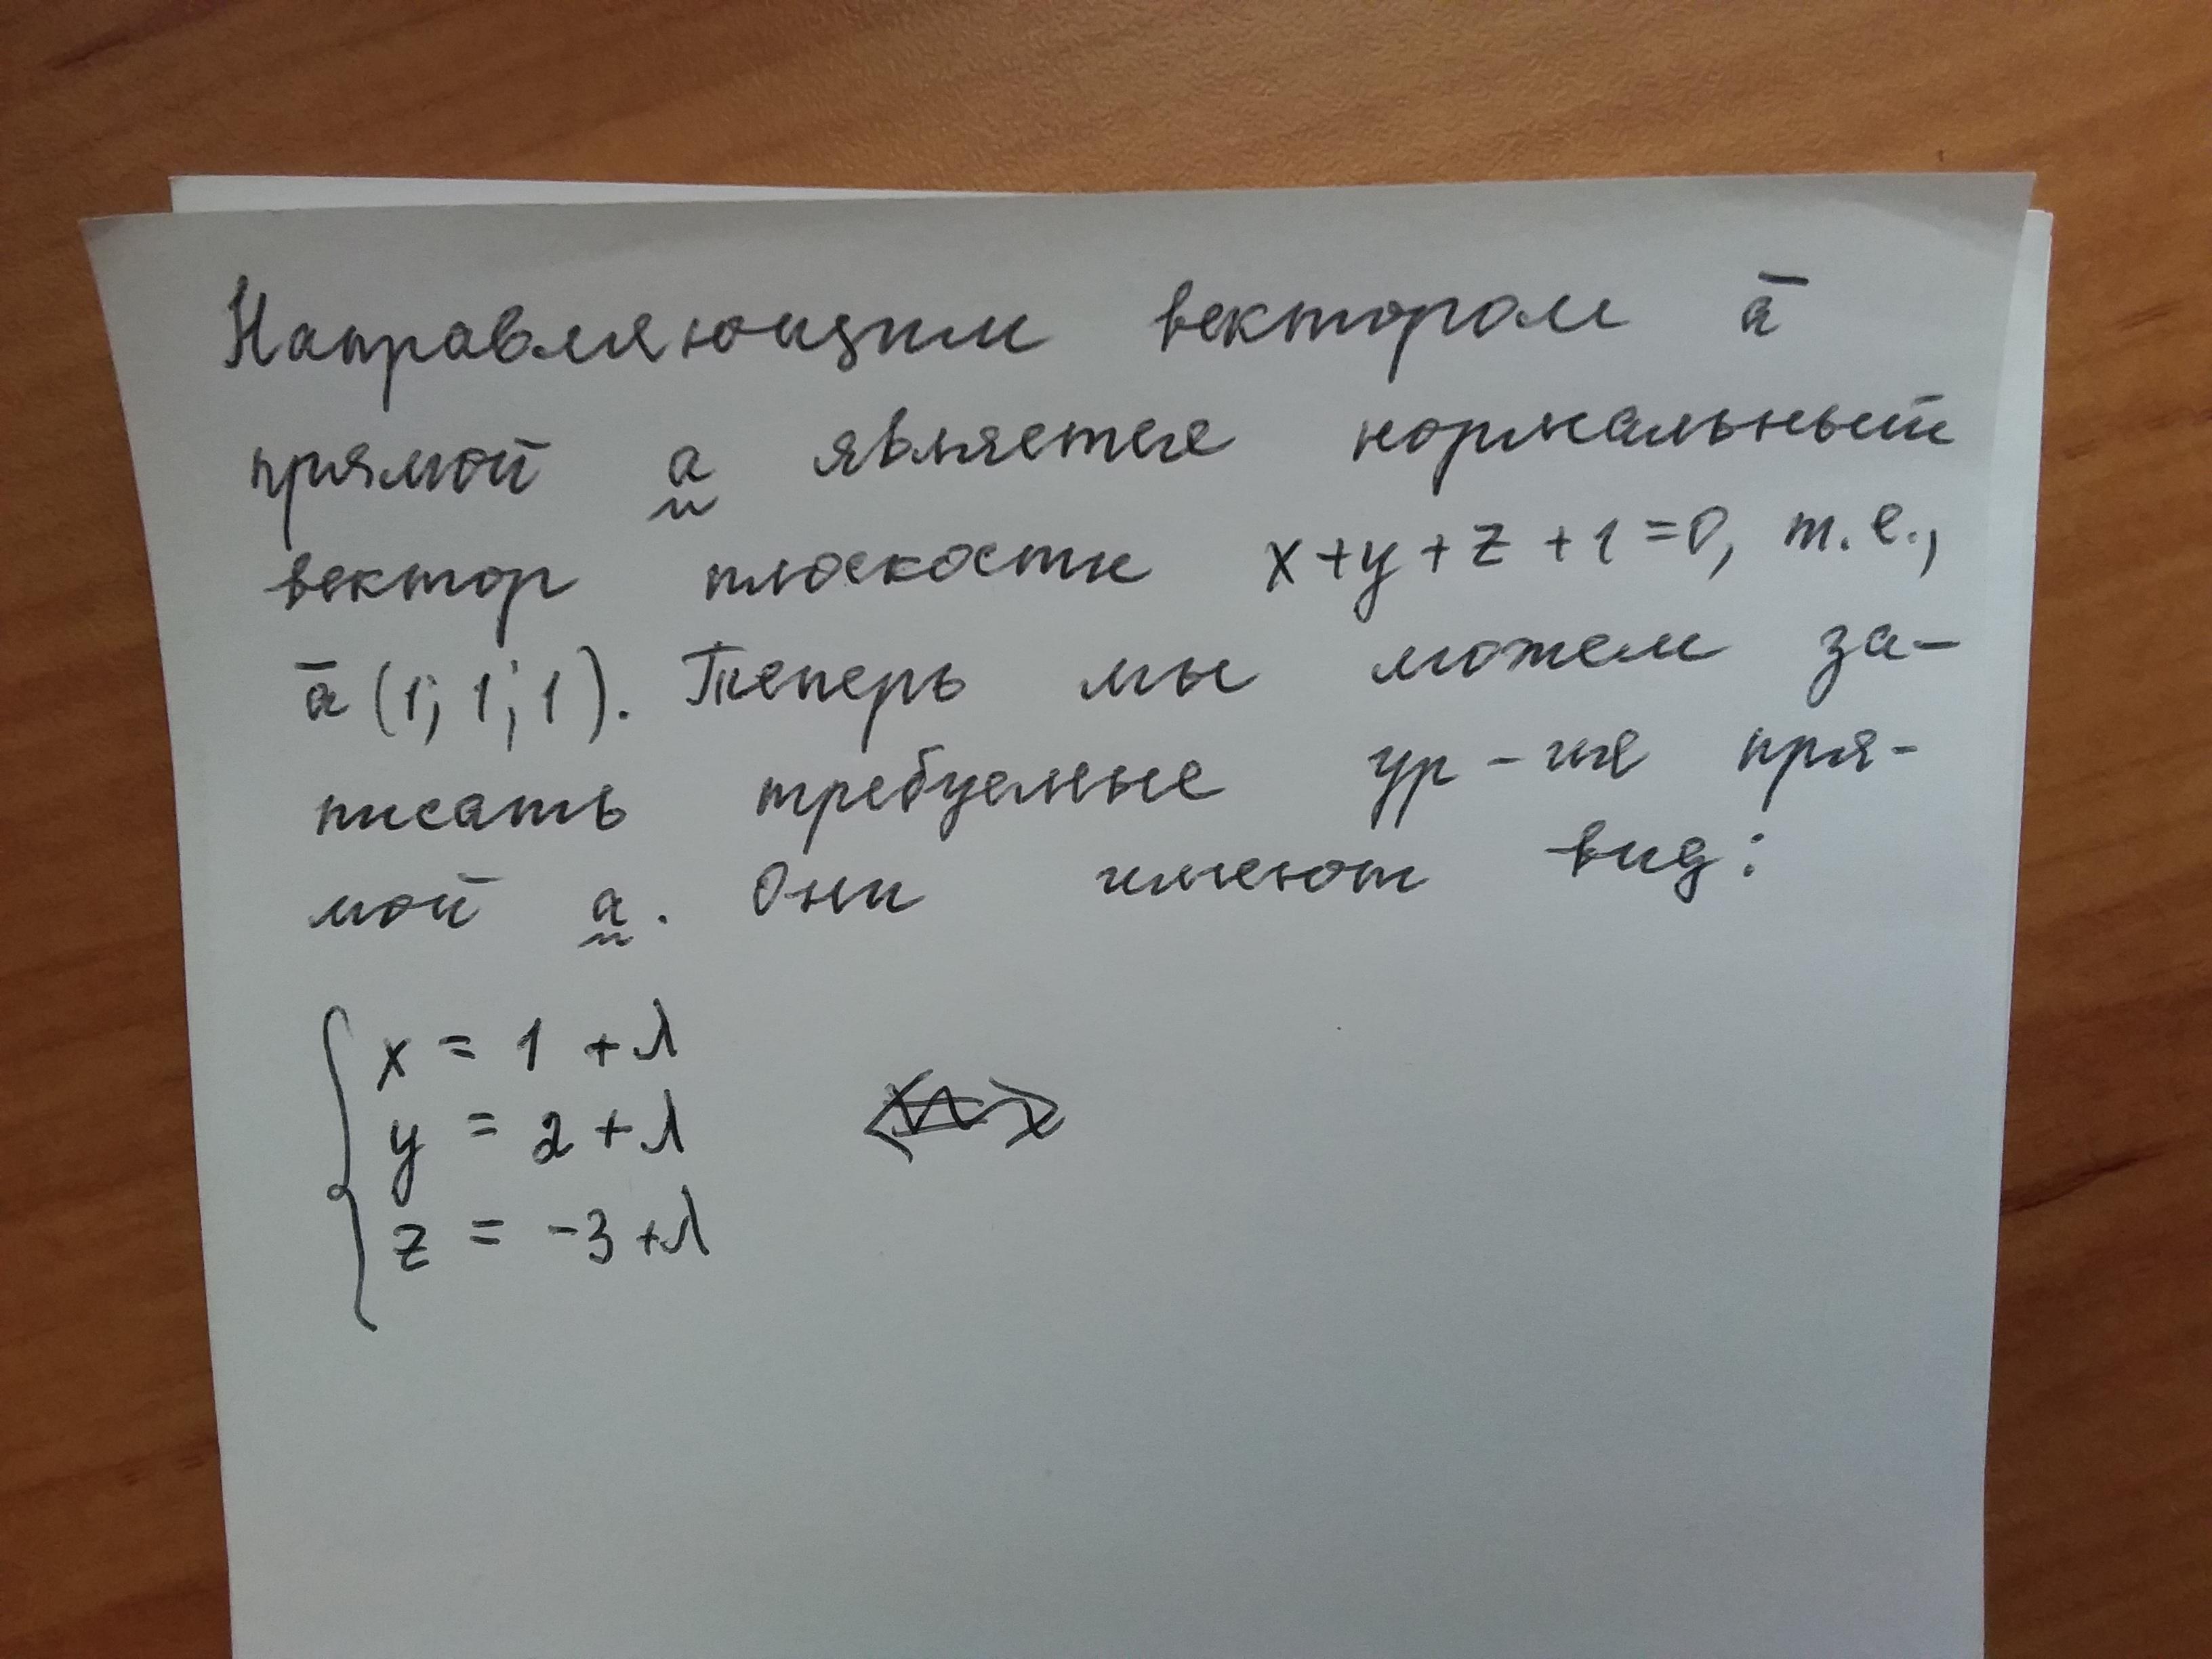 Направляющим вектором ā
прямой a является нормальный
вектор плоскости x+y+z+1=0, т.е.,
ā(1; 1; 1). Теперь мы можем за-
писать требуемые ур-ия пря-
мой a. Они имеют вид:
x = 1 + λ
y = 2 + λ
z = -3 + λ